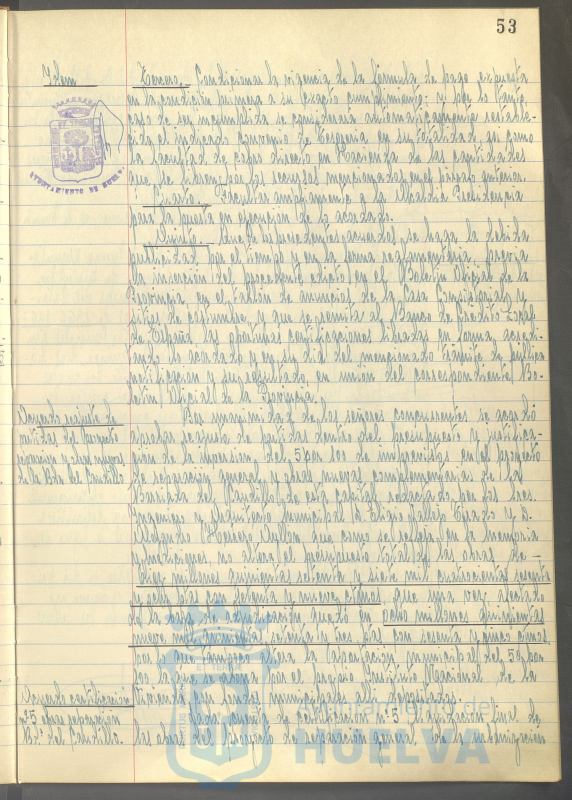 53
Idem
Tercero.- Condicionar la vigencia de la fórmula de pago expuesta
en la condición primera a su exacto cumplimiento; y por lo tanto,
caso de ser incumplida se considerará automáticamente restable-
cida el indicado convenio de Tesorería en su totalidad, así como
la facultad de cobro directo en Hacienda de las cantidades
que se liberen por los recursos mencionados en el párrafo anterior.
Cuarto.- Facultar ampliamente a la Alcaldía Presidencia
para la puesta en ejecución de lo acordado.
Quinto.- Que de los precedentes acuerdos se haga la debida
publicidad por el tiempo y en la forma reglamentaria, previa
la inserción del procedente edicto en el Boletín Oficial de la
Provincia, en el tablón de anuncios de la Casa Consistorial y
sitios de costumbre, y que se remita al Banco de Crédito Local
de España las oportunas certificaciones libradas en forma, acredi-
tando lo acordado y en su día del mencionado trámite de publica
notificación y su resultado, en unión del correspondiente Bo-
letín Oficial de la Provincia.
Acuerdo reajuste de
partidas del Proyecto
reparación y obras nuevas
de la Bda. del Caudillo
Por unanimidad de los señores concurrentes se acordó
aprobar reajuste de partidas dentro del presupuesto y justifica-
ción de la inversión del 5 por 100 de imprevistos en el proyecto
de reparación general y obras nuevas complementarias de la
Barriada del Caudillo de esta capital redactado por los Sres.
Ingeniero y Arquitecto Municipal D.
Alejandro Herrero Ayllón, que como se refleja en la Memoria
y Mediciones, no altera el presupuesto total de las obras de -
diez millones quinientas setenta y siete mil cuatrocientas sesenta
y ocho ptas con setenta y nueve ctmos, que una vez afectado
de la baja de adjudicación, quedó en ocho millones quinientas
nueve mil quinientas setenta y tres ptas con setenta y cinco ctmos,
por lo que tampoco altera la aportación municipal del 50 por
100 la que se abona por el propio Instituto Nacional de la
Vivienda con fondos municipales allí depositados.
Acuerdo certificación
nº 5 obras reparación
Bda. del Caudillo.
Dada cuenta de Certificación nº 5 y liquidación final de
las obras del proyecto de reparación general de la urbanización
AYUNTAMIENTO DE HUELVA
Ayuntamiento de
HUELVA